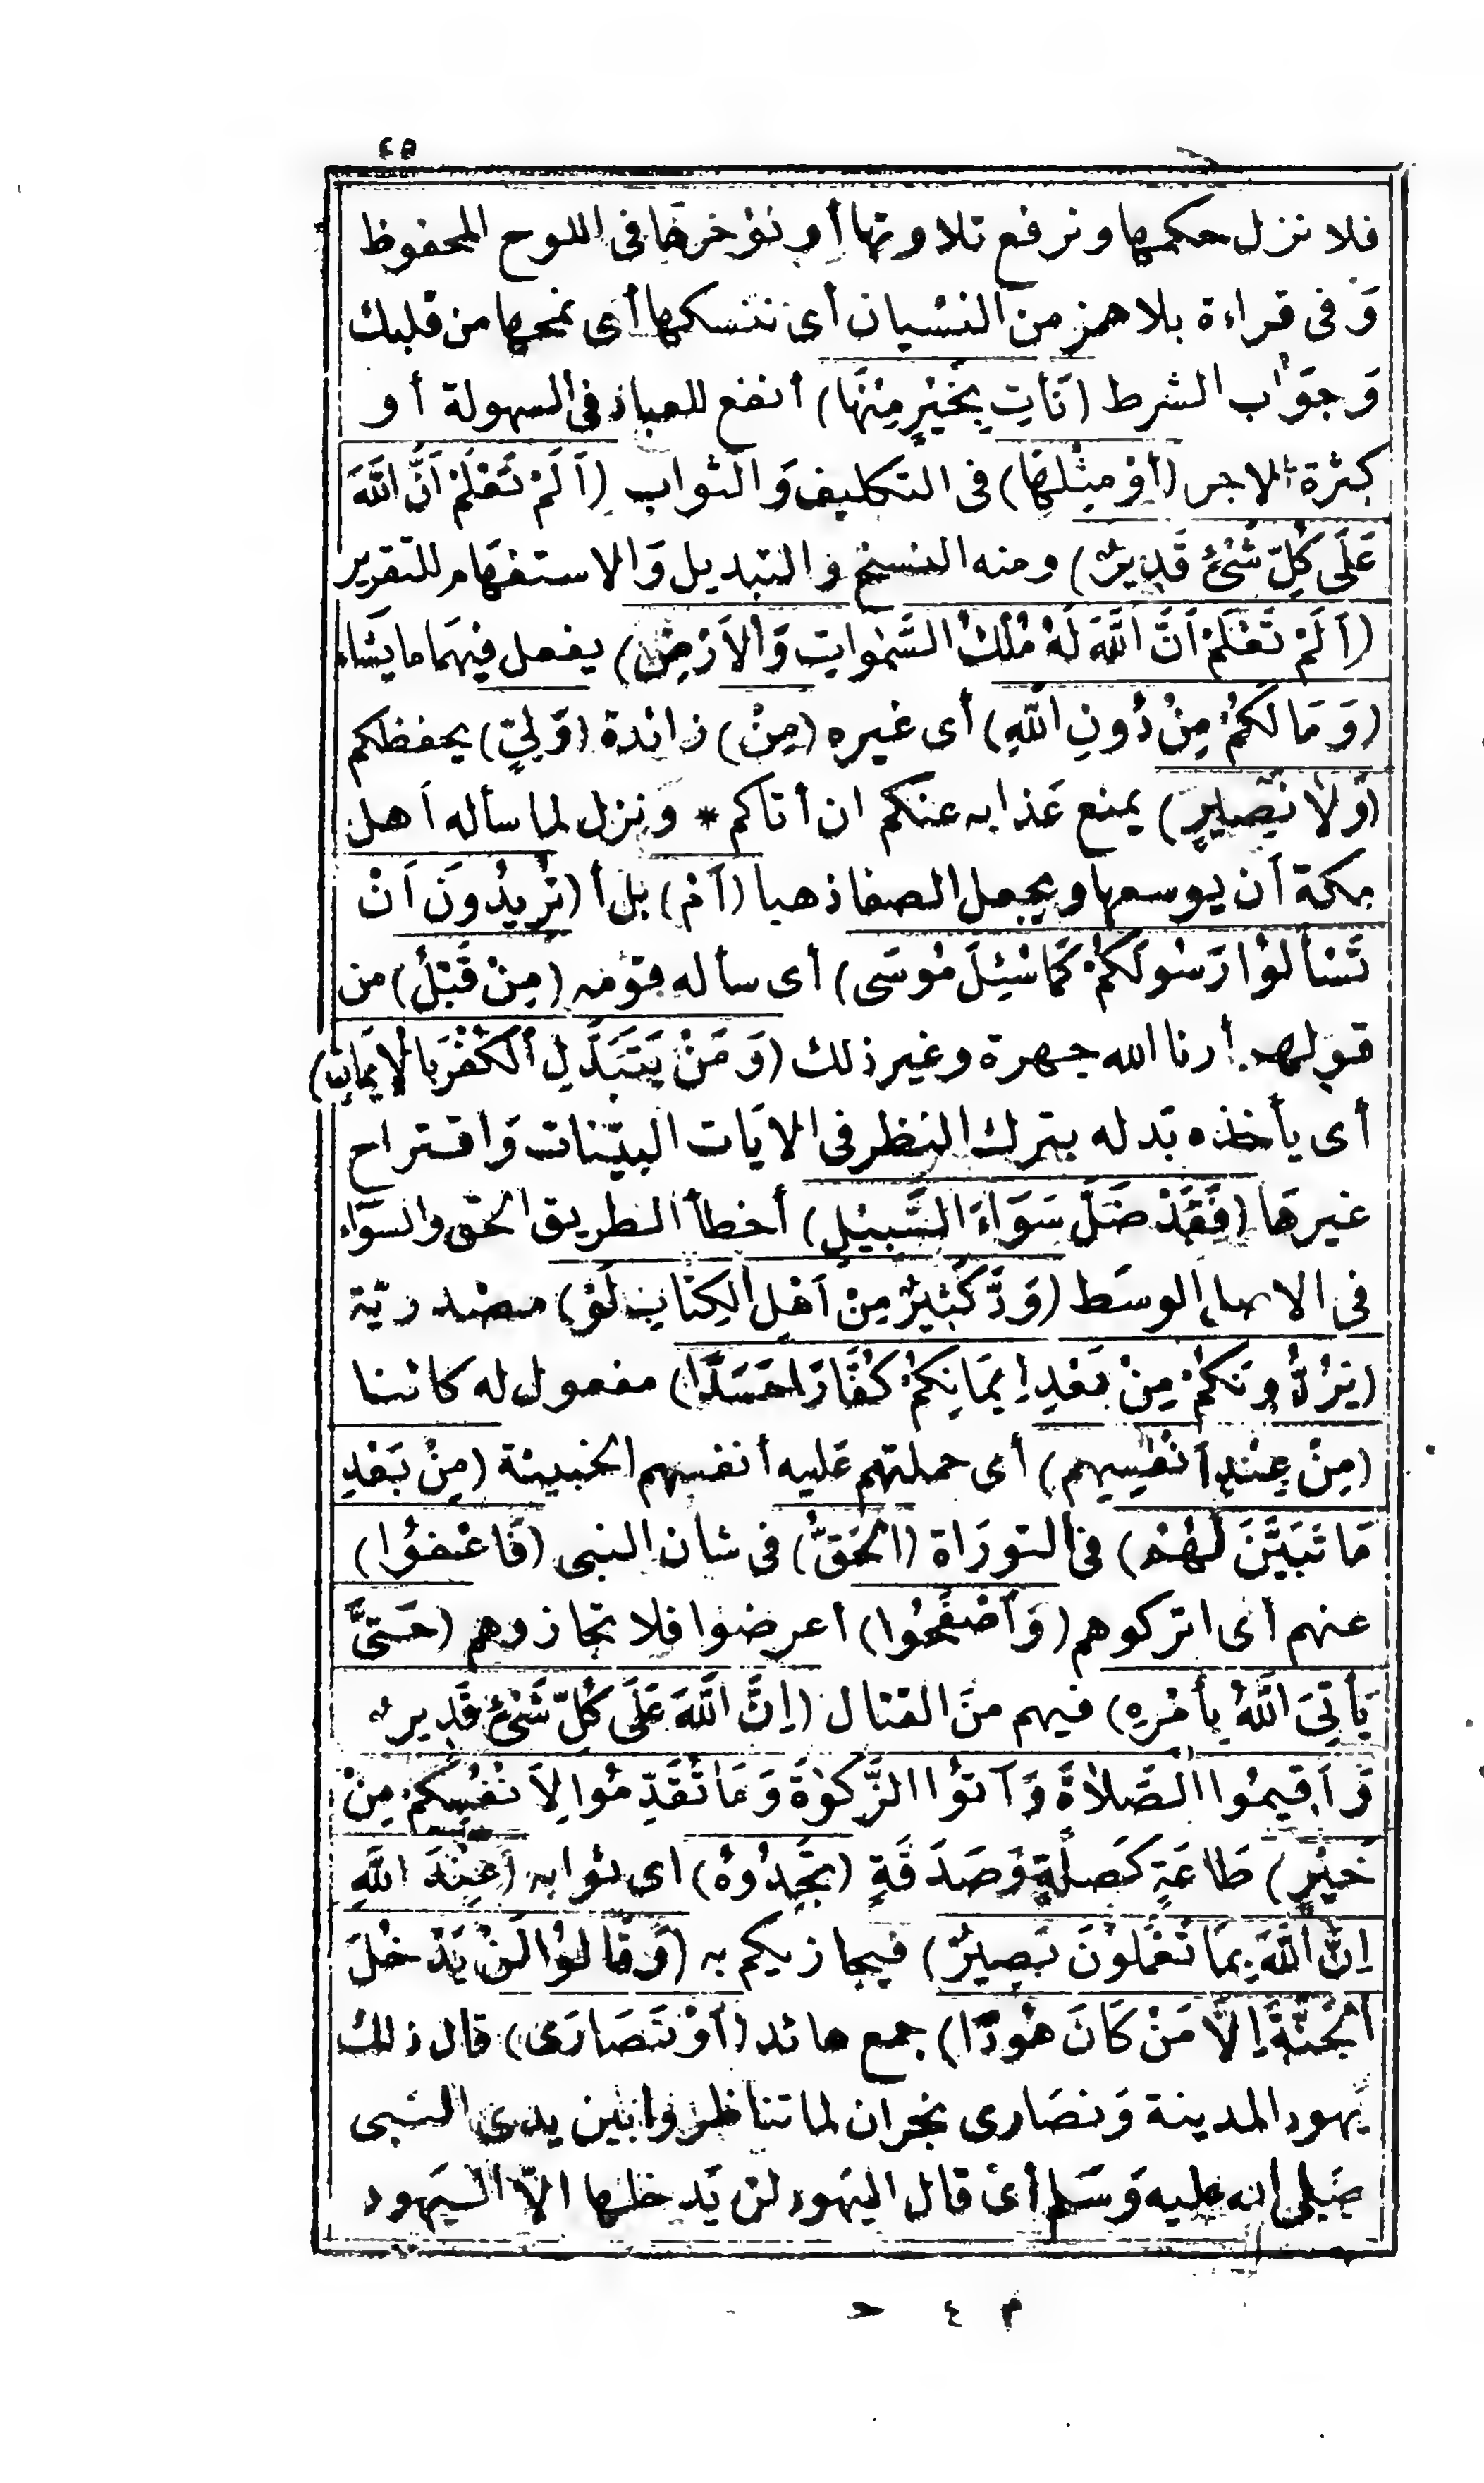 ٤٥
فلا نزل حكمها ونرفع تلاوتها أو نؤخرها فى اللوح المحفوظ
وَفى قراءة بلا همز من النسْيان أى ننسكها أى نمحها من قلبك
وَجوَاب الشرط (نَأتِ بِخَيْرٍ مِنْهَا) أنفع للعباد فى السهولة أو
كثرة الاجر (أوْ مِثْلِهَا) فى التكليف وَالثواب (اَلَمْ تَعْلَمْ اَنَّ اللَّهَ
عَلَى كُلِّ شَىْءٍ قَدِيرٌ) ومنه النسخ والتبديل وَالاستفهَام للتقرير
(اَلَمْ تَعْلَمْ اَنَّ اللَّهَ لَهُ مُلْكُ السَّمٰوَاتِ وَالْاَرْضِ) يفعل فيهمَا ما يَشاء
(وَمَا لَكُمْ مِنْ دُونِ اللَّهِ) أى غيره (مِنْ) زائدة (وَلِيٍّ) يحفظكم
(وَلَا نَصِيرٍ) يمنع عَذابه عنكم ان أتاكم * ونزل لما سأله أهل
مكة أن يوسعها ويجعل الصفا ذهبا (اَمْ) بل أ (تُرِيدُونَ اَنْ
تَسْألُوا رَسُولَكُمْ كَمَا سُئِلَ مُوسَى) أى سأله قوْمه (مِنْ قَبْلُ) من
قولهم أرنا الله جهرة وغير ذلك (وَمَنْ يَتَبَدَّلِ الْكُفْرَ بِالْاِيمَانِ)
أى يأخذه بَدله بترك النظر فى الايَات البيّنات وَاقتراح
غيرهَا (فَقَدْ ضَلَّ سَوَاءَ السَّبِيلِ) أخطأ الطريق الحق والسوَاء
فى الاصل الوسَط (وَدَّ كَثِيرٌ مِنْ اَهْلِ الْكِتَابِ لَوْ) مصْدريّة
(يَرُدُّونَكُمْ مِنْ بَعْدِ اِيمَانِكُمْ كُفَّارًا حَسَدًا) مفعول له كائنا
(مِنْ عِنْدِ اَنْفُسِهِم) أى حملتهم عَليه أنفسهم الخبيثة (مِنْ بَعْدِ
مَا تَبَيَّنَ لَهُمْ) فى التورَاة (الْحَقُّ) فى شان النبى (فَاعْفُوا)
عنهم أى اتركوهم (وَاصْفَحُوا) أعرضوا فلا تجازوهم (حَتَّى
يَأتِىَ اللَّهُ بِأمْرِهِ) فيهم منَ القتال (اِنَّ اللَّهَ عَلَى كُلِّ شَىْءٍ قَدِيرٌ
وَاَقِيمُوا الصَّلَاةَ وَآتوُا الزَّكٰوةَ وَمَا تُقَدِّمُوا لِاَنْفُسِكُمْ مِنْ
خَيْرٍ) طَاعَةٍ كَصلَةٍ وَصَدَقَةٍ (تَجِدُوهُ) اى ثوابه (عِنْدَ اللَّهِ
اِنَّ اللَّهَ بِمَا تَعْمَلُونَ بَصِيرٌ) فيجازيكم به (وَقَالوُا لَنْ يَدْخُلَ
الْجَنَّةَ اِلَّا مَنْ كَانَ هُودًا) جمع هائد (اَوْ نَصَارَى) قال ذلك
يهود المدينة وَنصَارى نجران لما تناظروا بين يدى النبى
صَلى الله عليه وَسَلم أى قال اليَهود لن يَدخلها الاّ اليَهود
م ٤ ح